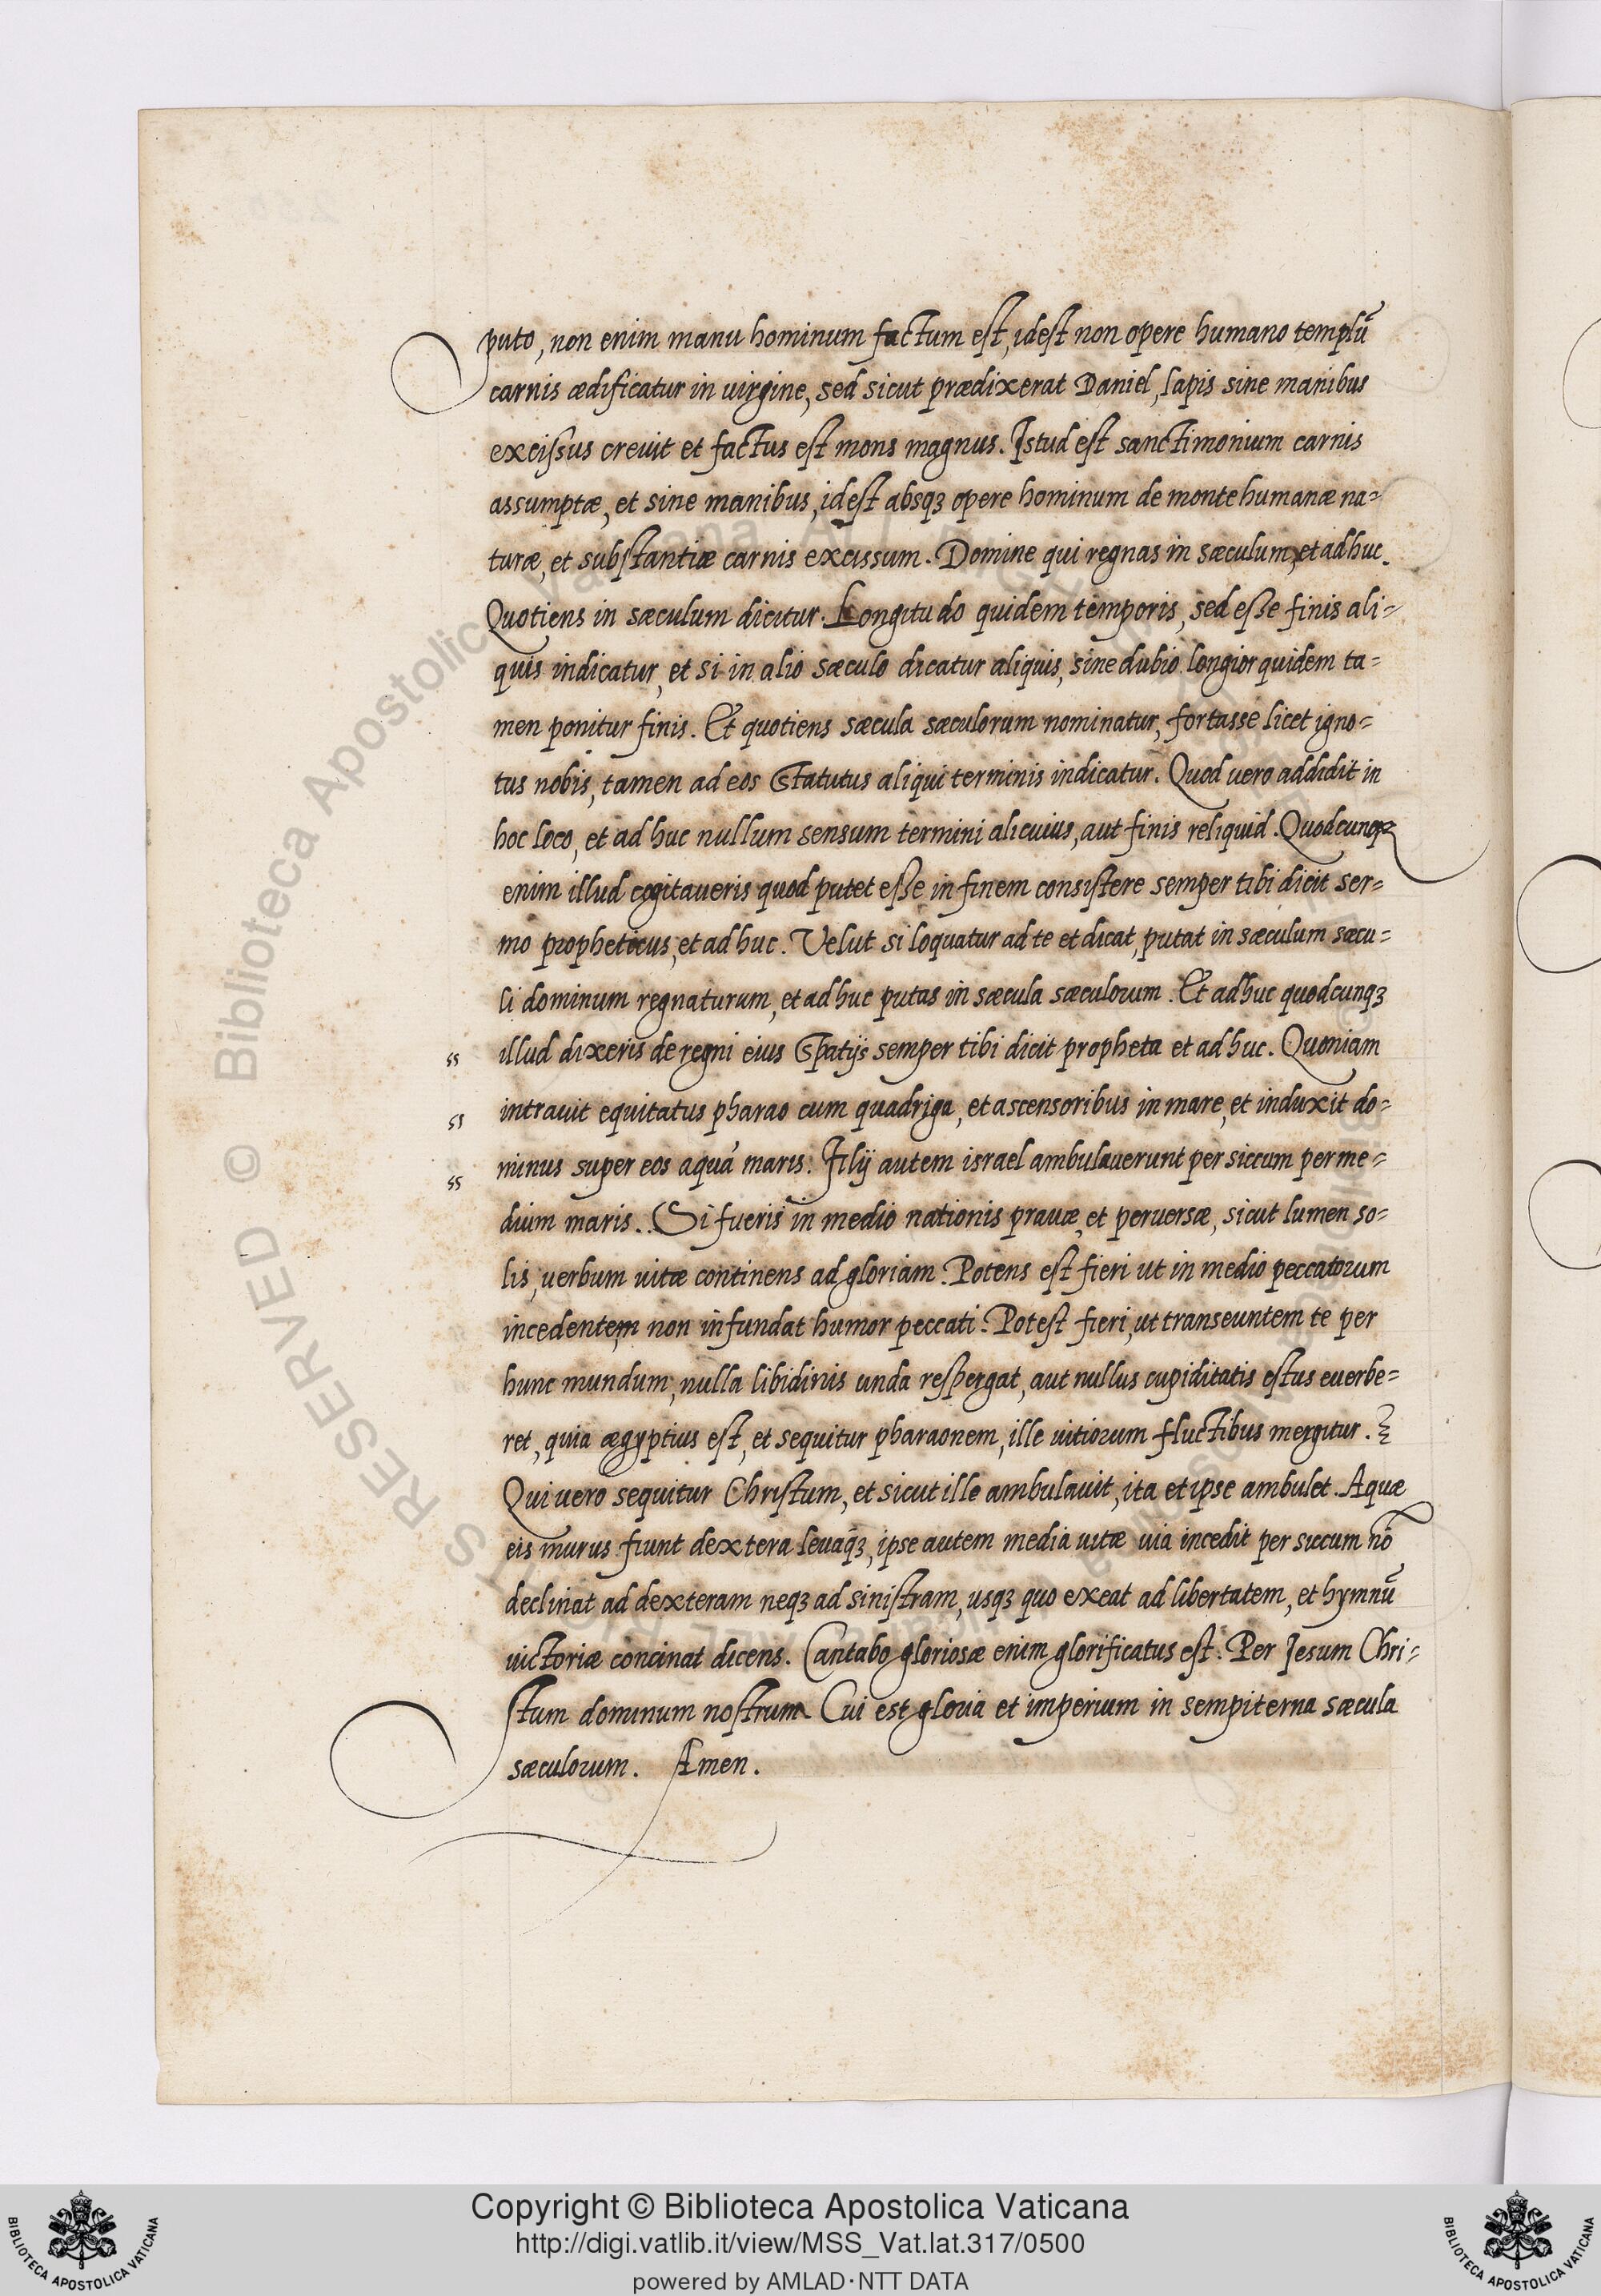 puto, non enim manu hominum factum est, idest non opere humano templū
carnis ædificatur in uirgine, sed sicut prædixerat Daniel, lapis sine manibus
excissus creuit et factus est mons magnus. Istud est sanctimonium carnis
assumptæ, et sine manibus, idest absqꝫ opere hominum de monte humanæ na=
turæ, et substantiæ carnis excissum. Domine qui regnas in sæculum, et adhuc.
Quotiens in sæculum dicitur. Longitudo quidem temporis, sed esse finis ali=
quis indicatur, et si in alio sæculo dicatur aliquis, sine dubio longior quidem ta=
men ponitur finis. Et quotiens sæcula sæculorum nominatur, fortasse licet igno=
tus nobis, tamen ad eos statutus aliqui terminis indicatur. Quod uero addidit in
hoc loco, et ad huc nullum sensum termini alicuius, aut finis reliquid. Quodcunqꝫ
enim illud cogitaueris quod putet esse in finem consistere semper tibi dicit ser=
mo propheticus, et ad huc. Velut si loquatur ad te et dicat, putat in sæculum sæcu=
li dominum regnaturum, et adhuc putas in sæcula sæculorum. Et adhuc quodcunqꝫ
ss illud dixeris de regni eius spatijs semper tibi dicit propheta et ad huc. Quoniam
ss intrauit equitatus pharao cum quadriga, et ascensoribus in mare, et induxit do=
ss minus super eos aquā maris. Filij autem israel ambulauerunt per siccum per me=
dium maris. Si fueris in medio nationis prauæ, et peruersæ, sicut lumen so=
lis, uerbum uitæ continens ad gloriam. Potens est fieri ut in medio peccatorum
incedentem, non infundat humor peccati. Potest fieri, ut transeuntem te per
hunc mundum, nulla libidinis unda respergat, aut nullus cupiditatis estus euerbe=
ret, quia ægyptius est, et sequitur pharaonem, ille uitiorum fluctibus mergitur.
Qui uero sequitur Christum, et sicut ille ambulauit, ita et ipse ambulet. Aquæ
eis murus fiunt dextera leuaqꝫ, ipse autem media uitæ uia incedit per siccum nō
declinat ad dexteram neqꝫ ad sinistram, usqꝫ quo exeat ad libertatem, et hymnū
uictoriæ concinat dicens. Cantabo gloriosæ enim glorificatus est. Per Jesum Chri=
stum dominum nostrum Cui est gloria et imperium in sempiterna sæcula
sæculorum. Amen.
© Biblioteca Apostolica Vaticana
RIGHTS RESERVED
Copyright © Biblioteca Apostolica Vaticana
http://digi.vatlib.it/view/MSS_Vat.lat.317/0500
powered by AMLAD·NTT DATA
BIBLIOTECA APOSTOLICA VATICANA
BIBLIOTECA APOSTOLICA VATICANA